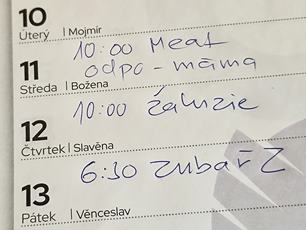 10
Úterý | Mojmír
10:00 Meat
11
odpo - máma
Středa | Božena
10:00 Žaluzie
12
Čtvrtek | Slavěna
6:30 Zubař Z
13
Pátek | Věnceslav